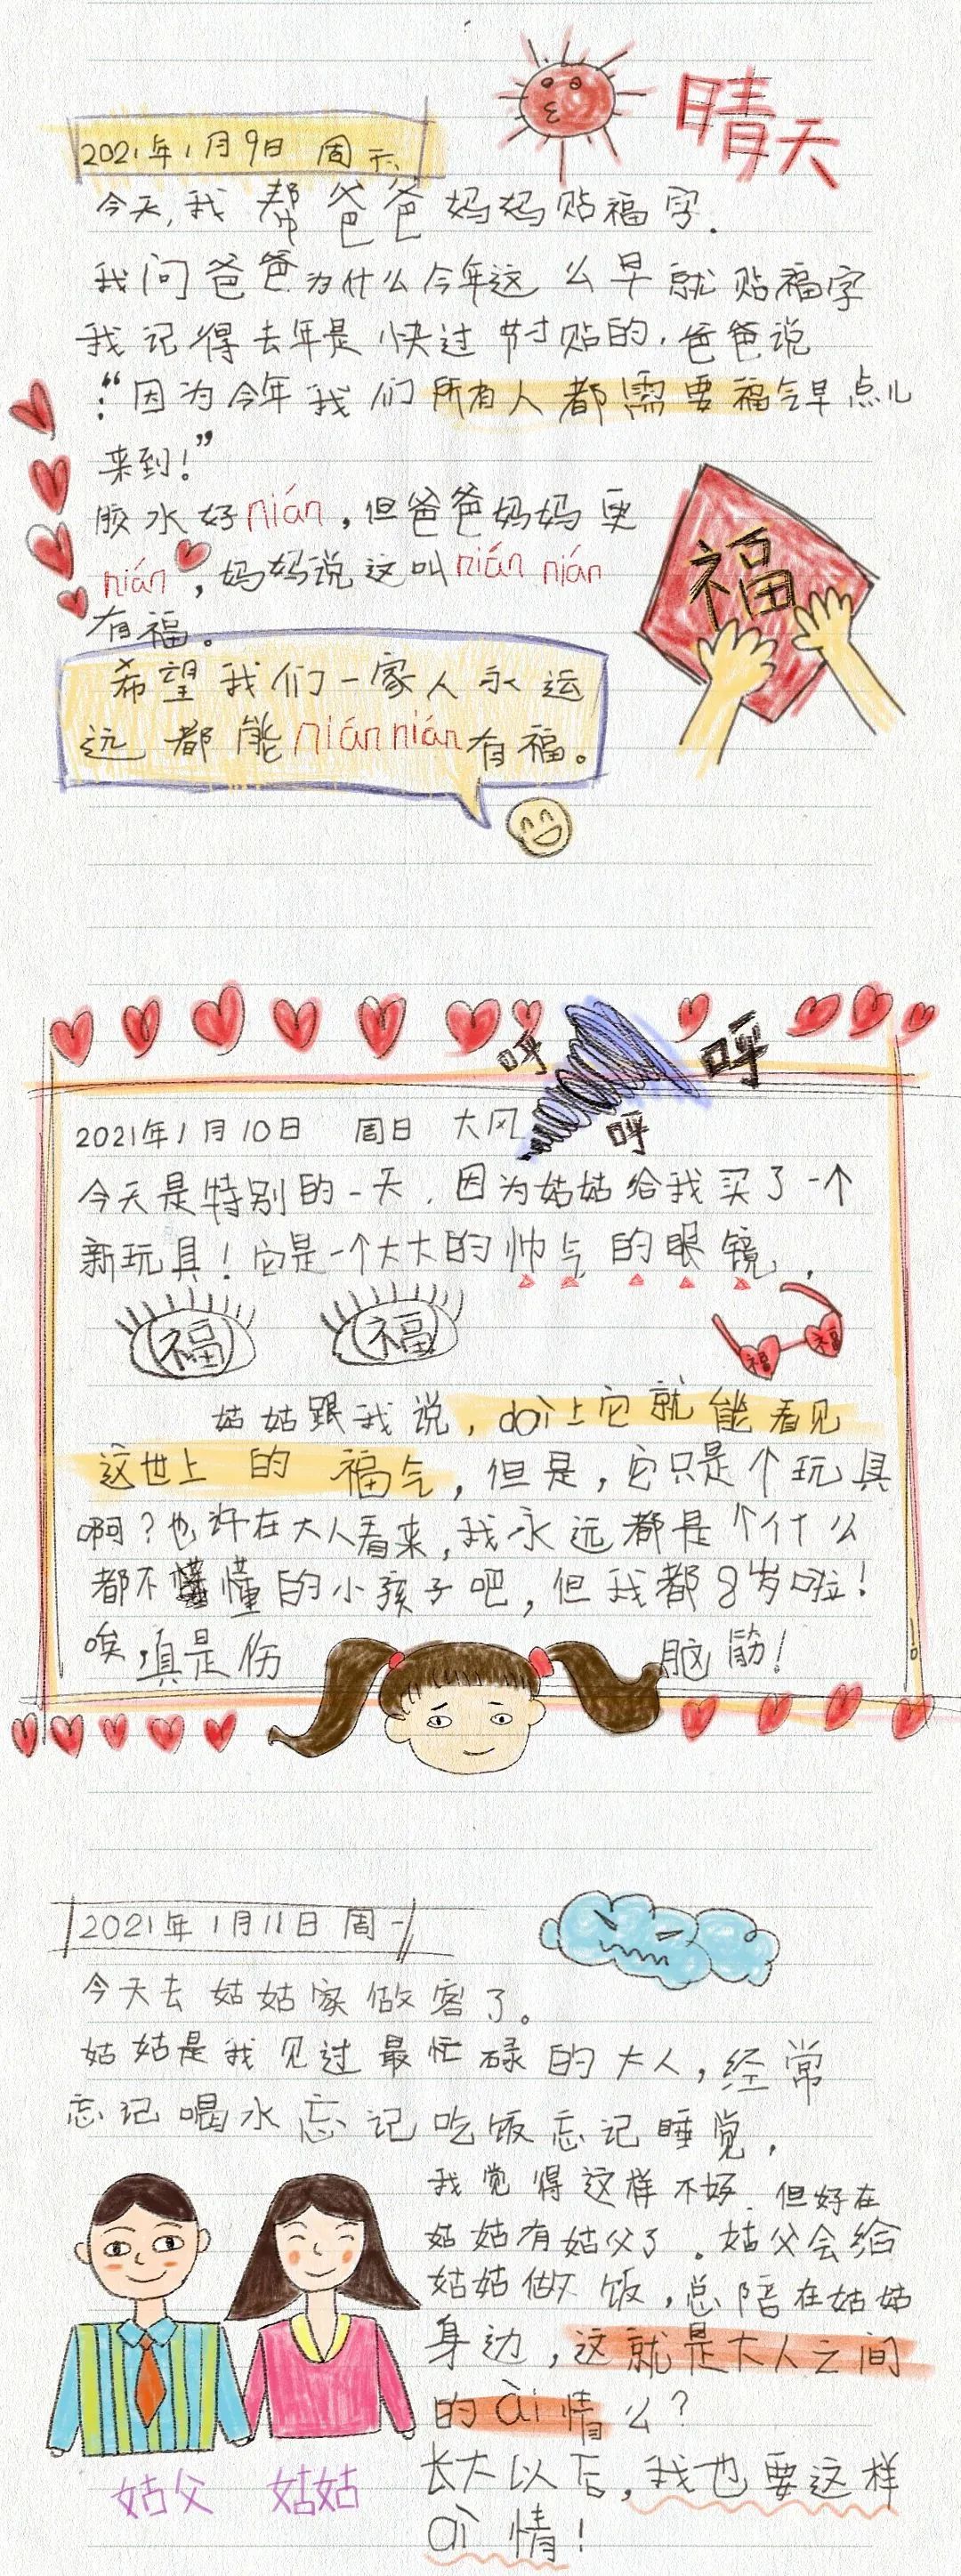 晴天
2021年1月9日 周天
今天,我帮爸爸妈妈贴福字.
我问爸爸为什么今年这么早就贴福字
我记得去年是快过节才贴的.爸爸说
:“因为今年我们所有人都需要福气早点儿
来到!”
胶水好nián,但爸爸妈妈更
nián,妈妈说这叫nián nián
有福。
福
希望我们一家人永远
远都能niánnián有福。
呼
呼
呼
2021年1月10日 周日 大风
今天是特别的一天.因为姑姑给我买了一个
新玩具!它是一个大大的帅气的眼镜.
福
福
福
福
姑姑跟我说,dài上它就能看见
这世上的福气,但是,它只是个玩具
啊?也许在大人看来,我永远都是个什么
都不懂的小孩子吧,但我都8岁啦!
唉,真是伤脑筋!
2021年1月11日 周一
今天去姑姑家做客了。
姑姑是我见过最忙碌的大人,经常
忘记喝水忘记吃饭忘记睡觉.
我觉得这样不好.但好在
姑姑有姑父了。姑父会给
姑姑做饭,总陪在姑姑
身边,这就是大人之间
的ài情么?
长大以后,我也要这样
ài情!
姑父 姑姑